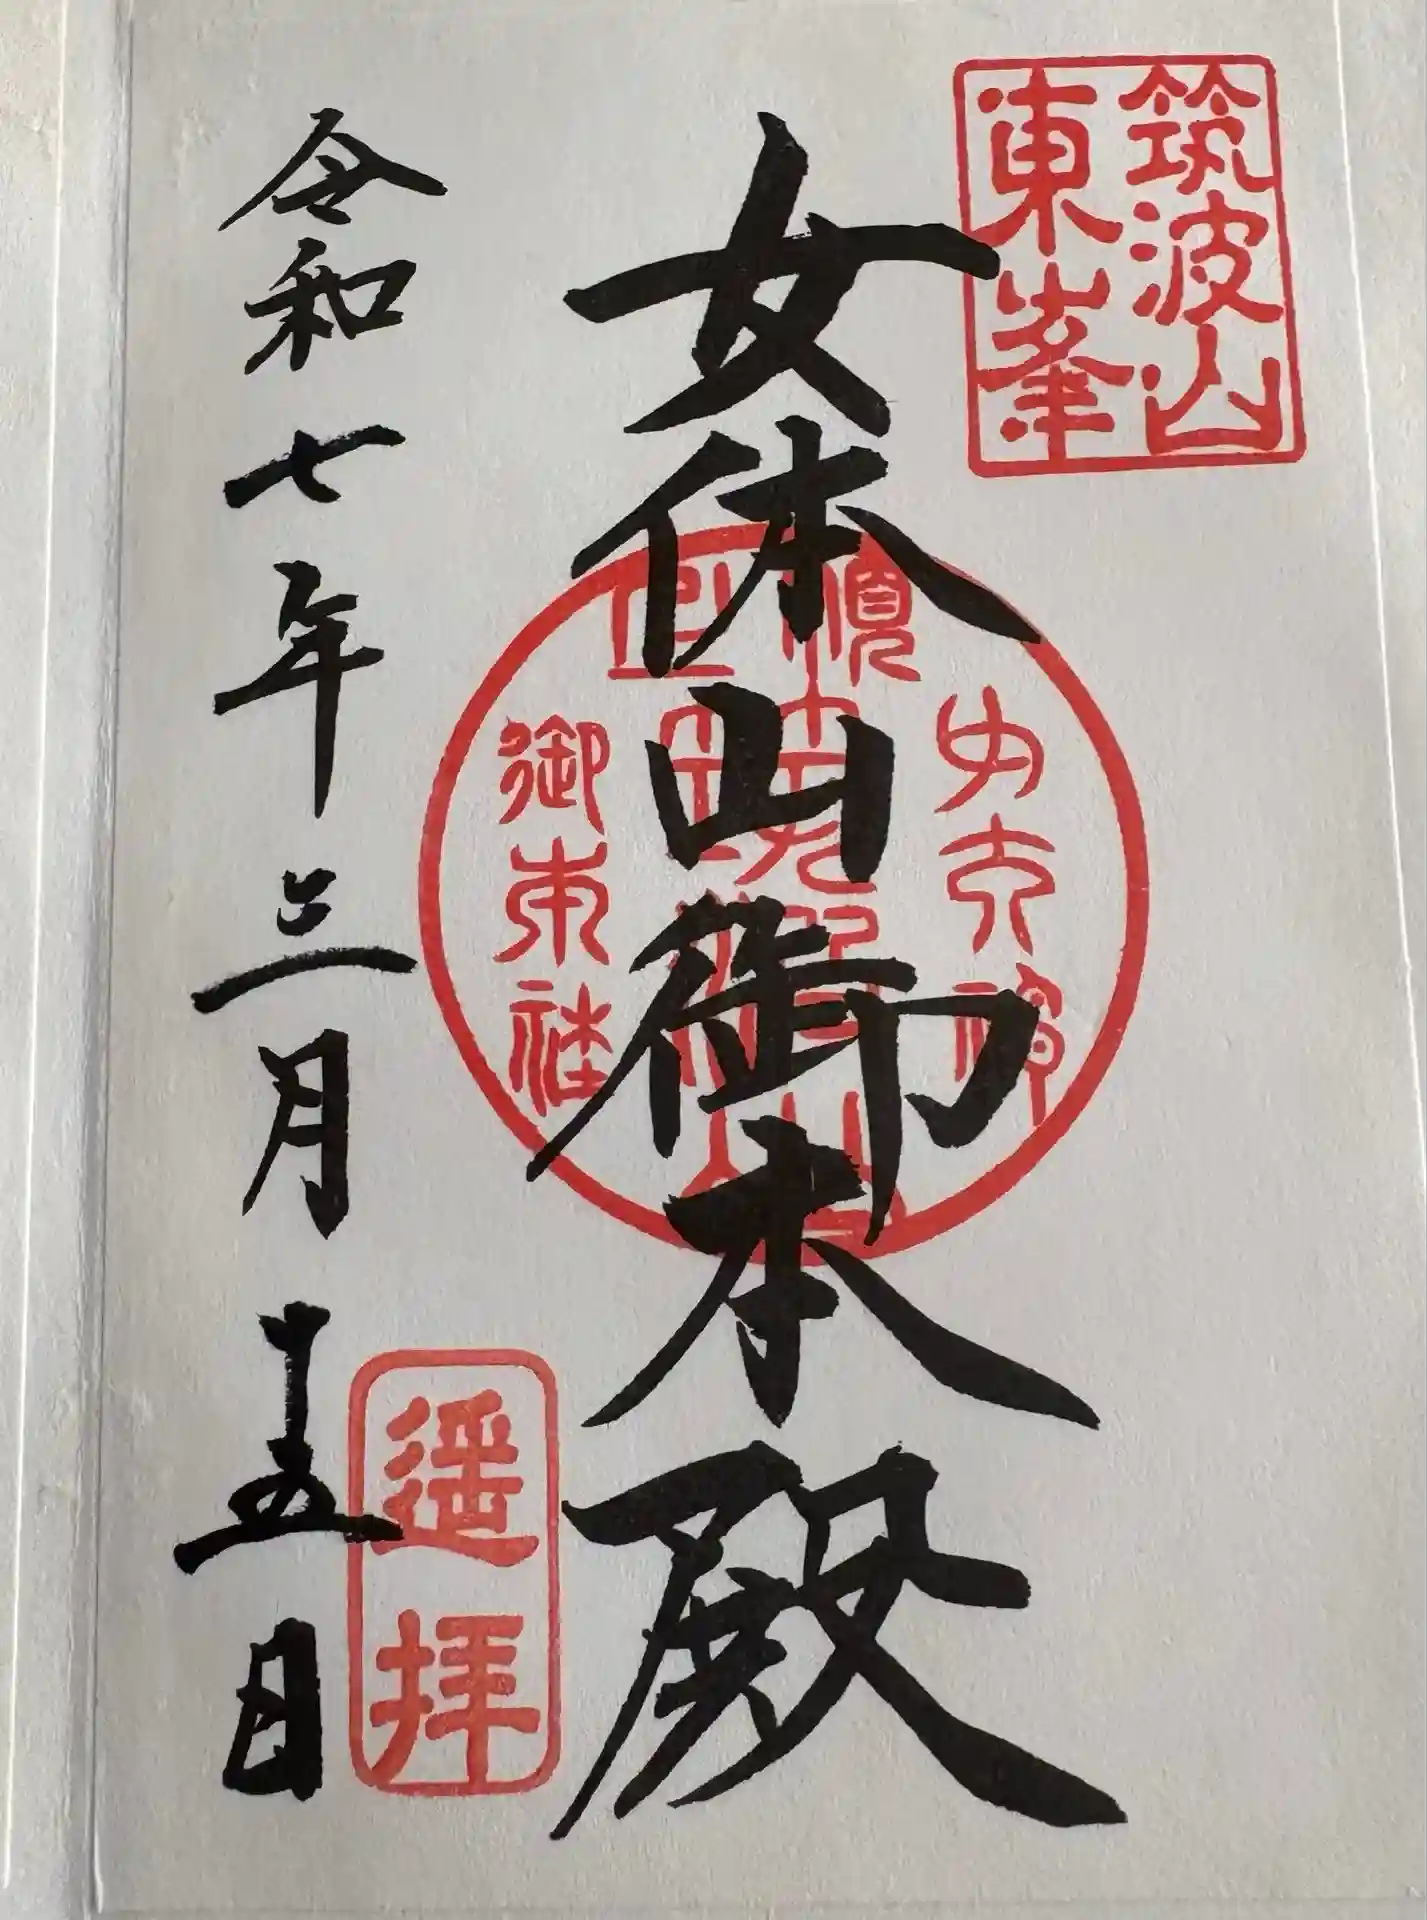 筑波山
東峯
女体山御本殿
御本社
令和七年三月十五日
遥拝